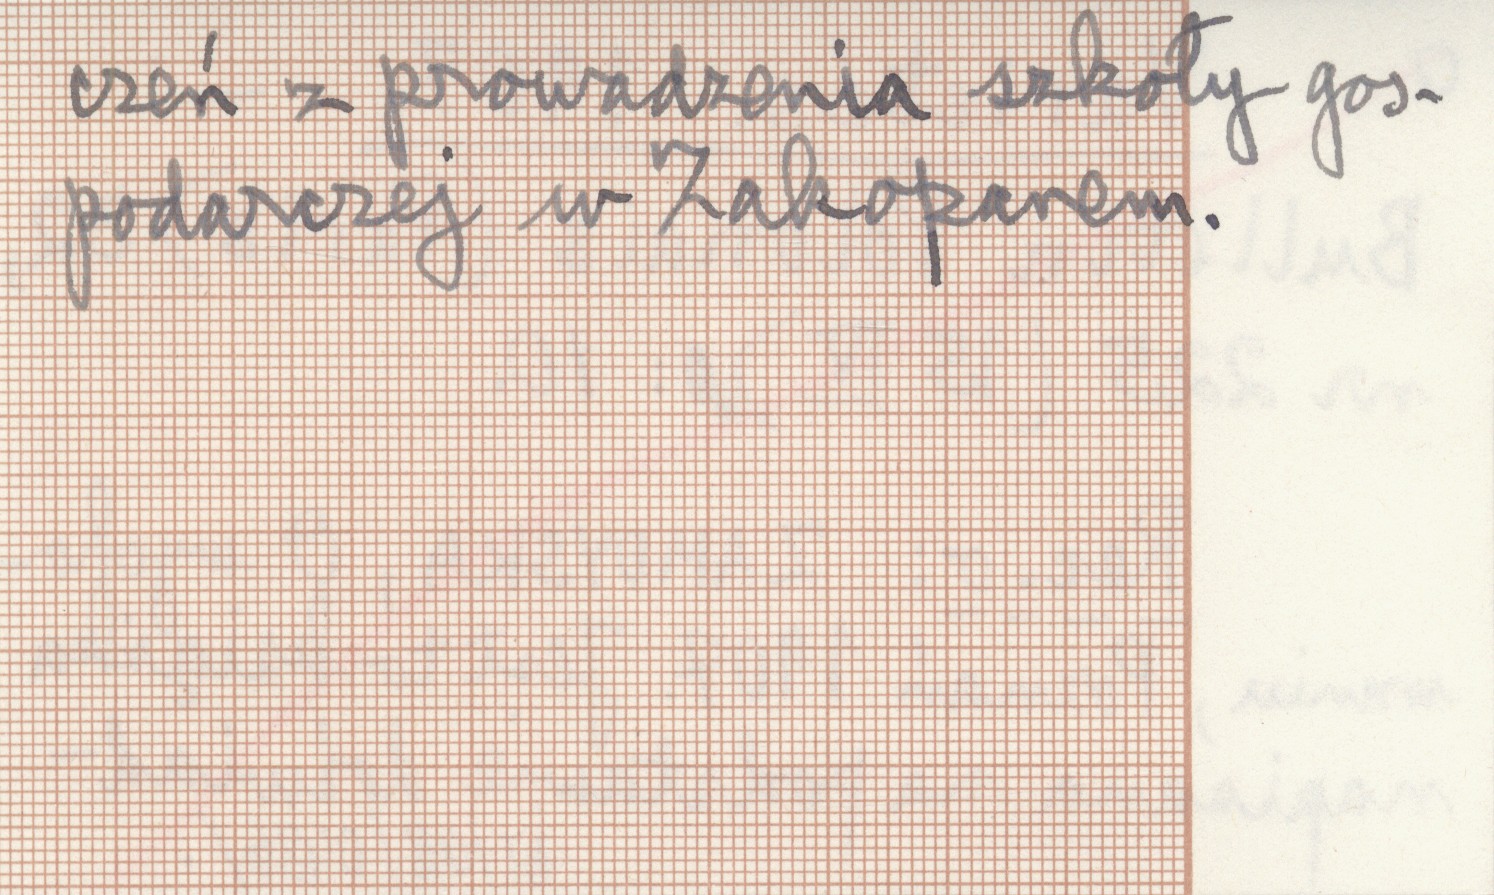 czeń z prowadzenia szkoły gos-
podarczej w Zakopanem.